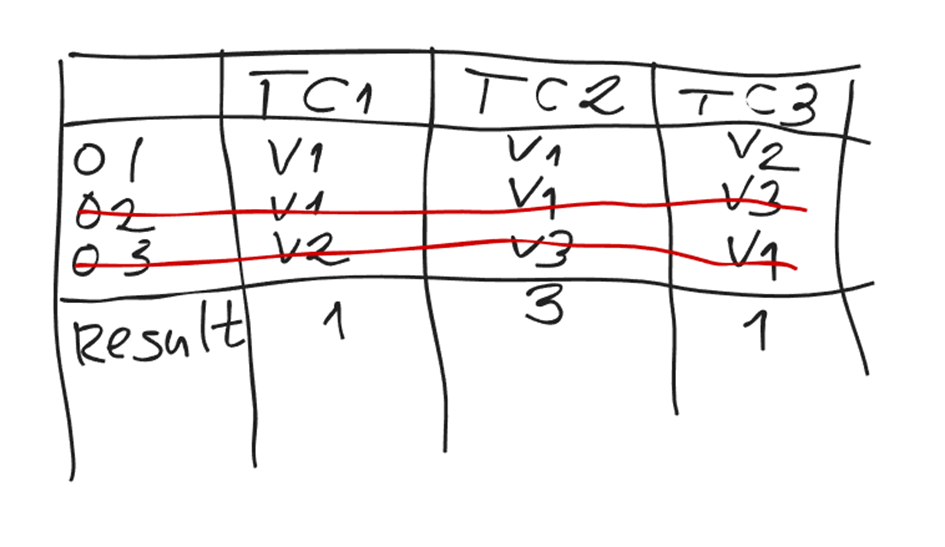 TC1 TC2 TC3
01 V1 V1 V2
02 V1 V1 V3
03 V2 V3 V1
Result 1 3 1